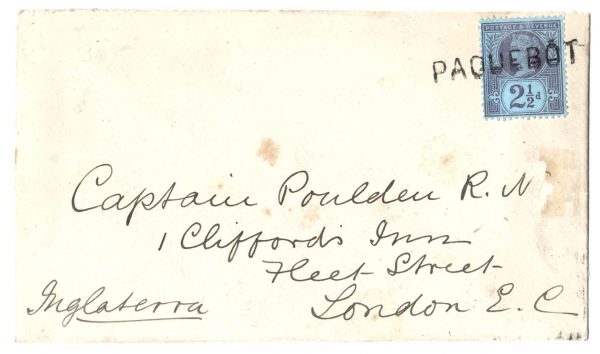 POSTAGE & REVENUE
PAQUEBOT
2½d
Captain Poulden R. N
1 Clifford's Inn
Fleet Street
Inglaterra London E. C